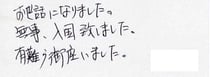 お世話になりました。
無事、入国致しました。
有難う御座いました。